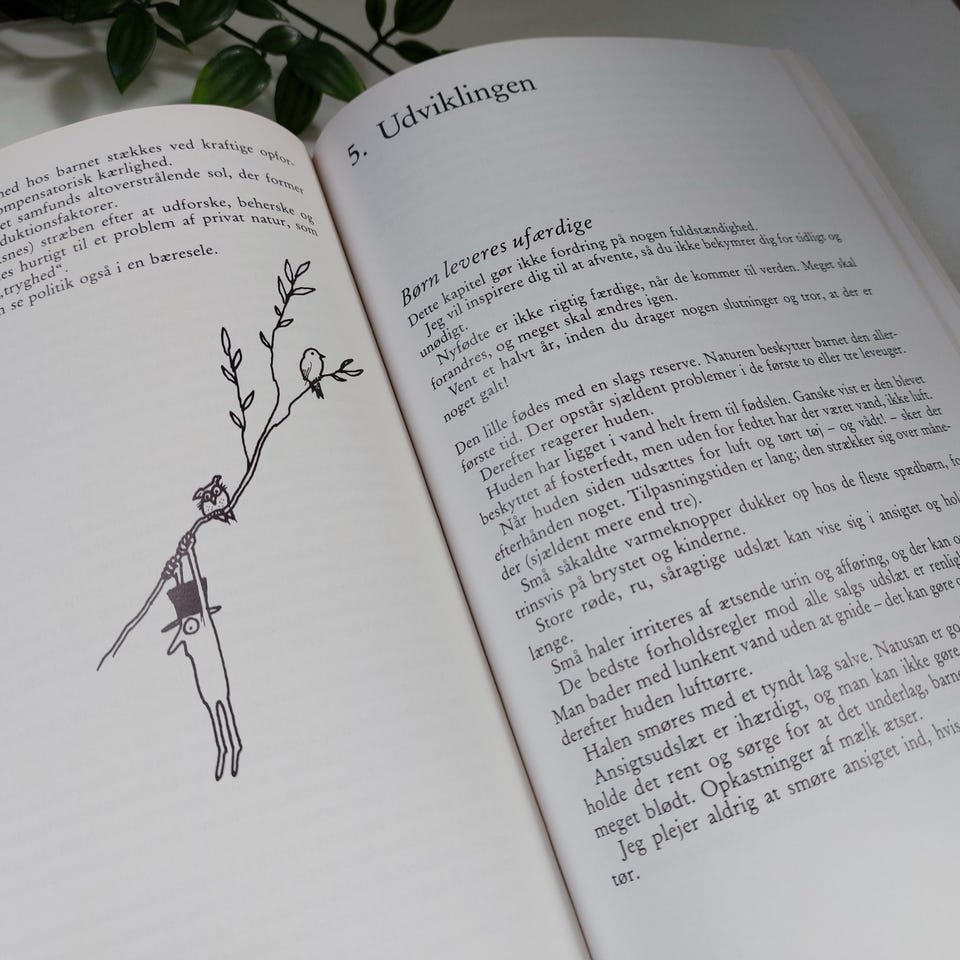 hed hos barnet stækkes ved kraftige opfor-
ompensatorisk kærlighed.
et samfunds altoverstrålende sol, der former
duktionsfaktorer.
snes) stræben efter at udforske, beherske og
es hurtigt til et problem af privat natur, som
„tryghed“.
n se politik også i en bæresele.
5. Udviklingen
Børn leveres ufærdige
Dette kapitel gør ikke fordring på nogen fuldstændighed.
Jeg vil inspirere dig til at afvente, så du ikke bekymrer dig for tidligt og
unødigt.
Nyfødte er ikke rigtig færdige, når de kommer til verden. Meget skal
forandres, og meget skal ændres igen.
Vent et halvt år, inden du drager nogen slutninger og tror, at der er
noget galt!
Den lille fødes med en slags reserve. Naturen beskytter barnet den aller-
første tid. Der opstår sjældent problemer i de første to eller tre leveuger.
Derefter reagerer huden.
Huden har ligget i vand helt frem til fødslen. Ganske vist er den blevet
beskyttet af fosterfedt, men uden for fedtet har der været vand, ikke luft.
Når huden siden udsættes for luft og tørt tøj – og vådt! – sker der
efterhånden noget. Tilpasningstiden er lang; den strækker sig over måne-
der (sjældent mere end tre).
Små såkaldte varmeknopper dukker op hos de fleste spædbørn, fo
trinsvis på brystet og kinderne.
Store røde, ru, såragtige udslæt kan vise sig i ansigtet og hol
længe.
Små haler irriteres af ætsende urin og afføring, og der kan o
De bedste forholdsregler mod alle salgs udslæt er renlig
Man bader med lunkent vand uden at gnide – det kan gøre o
derefter huden lufttørre.
Halen smøres med et tyndt lag salve. Natusan er go
Ansigtsudslæt er ihærdigt, og man kan ikke gøre
holde det rent og sørge for at det underlag, barne
meget blødt. Opkastninger af mælk ætser.
Jeg plejer aldrig at smøre ansigtet ind, hvis
tør.